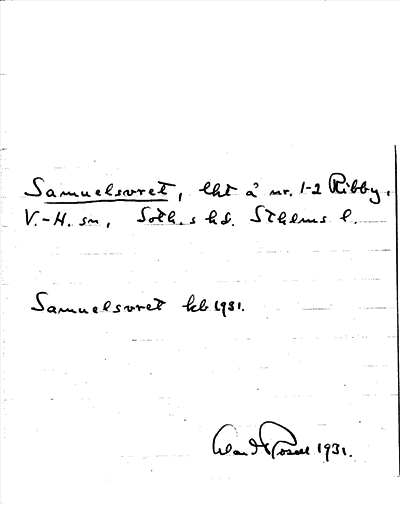 Samuelsvret, lht å nr. 1-2 Ribby,
V.-H. sn, Soth.s hd. Sthlms l.
Samuelsvret kb 1931.
1931.